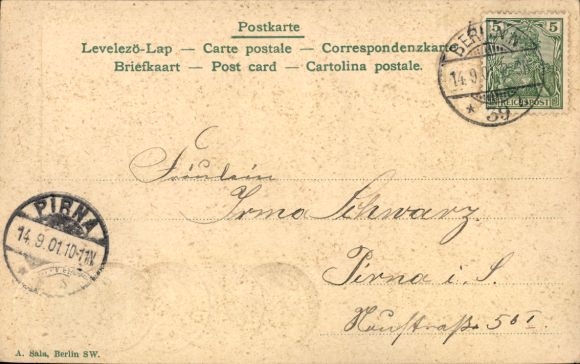 Postkarte
Levelezö-Lap — Carte postale — Correspondenzkarte
Briefkaart — Post card — Cartolina postale.
BERLIN N.
14.9.01
* 39
5 5
REICHSPOST
Fräulein
Irma Schwarz.
Pirna i. S.
PIRNA
14.9.01.10-11V.
A. Sala, Berlin SW.